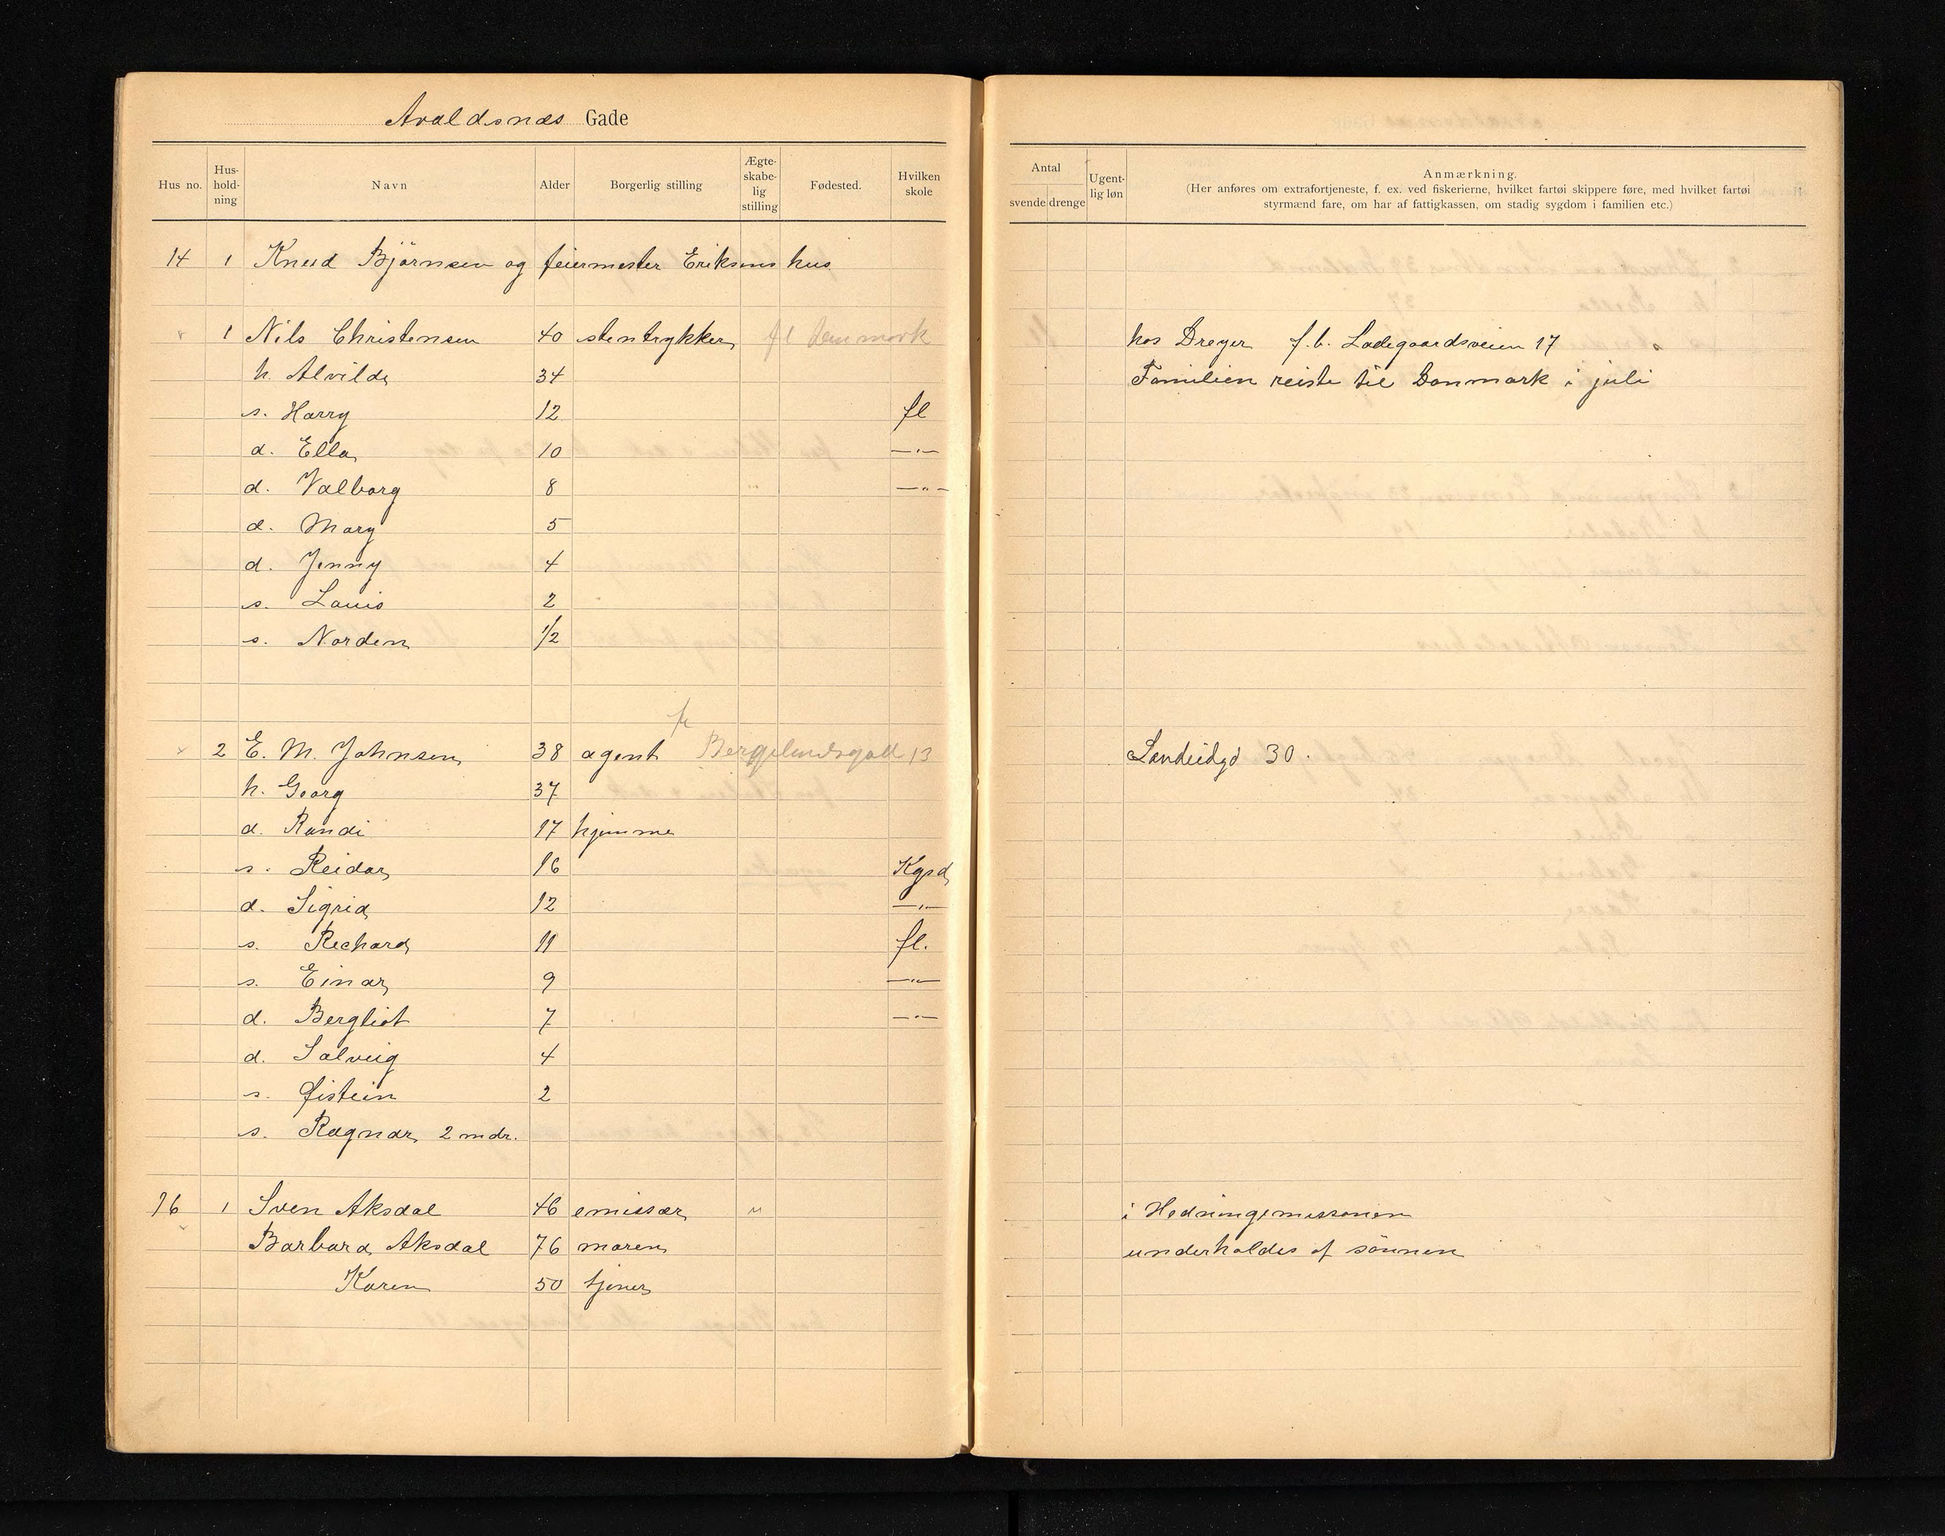 Avaldsnæs Gade
Hus no. Hus-hold-ning Navn Alder Borgerlig stilling Ægte-skabe-lig stilling Fødested. Hvilken skole
Antal svende drenge Ugent-lig løn Anmærkning.
(Her anføres om extrafortjeneste, f. ex. ved fiskerierne, hvilket fartøi skippere føre, med hvilket fartøi
styrmænd fare, om har af fattigkassen, om stadig sygdom i familien etc.)
14 1 Knud Björnsen og feiermester Eriksens hus
1 Nils Christensen 40 stentrykker fl Danmark hos Dreyer f.b. Ladegaardsveien 17
h. Alvilde 34 Familien reiste til Danmark i juli
s. Harry 12 fl
d. Ella 10 —"—
d. Valborg 8 —"—
d. Mary 5
d. Jenny 4
s. Louis 2
s. Norden 1/2
fr
2 E. M. Johnsen 38 agent Bergelandsgad 13 Sandeidgd 30.
h. Georg 37
d. Randi 17 hjemme
s. Reidar 16 Kgsd
d. Sigrid 12 —"—
s. Richard 11 fl.
s. Einar 9 —"—
d. Bergliot 7 —"—
d. Solveig 4
s. Øistein 2
s. Ragnar 2 mdr.
16 1 Sven Aksdal 46 emissær " i Hedningemissionen
Barbara Aksdal 76 moren underholdes af sönnen
Karen 50 tjener